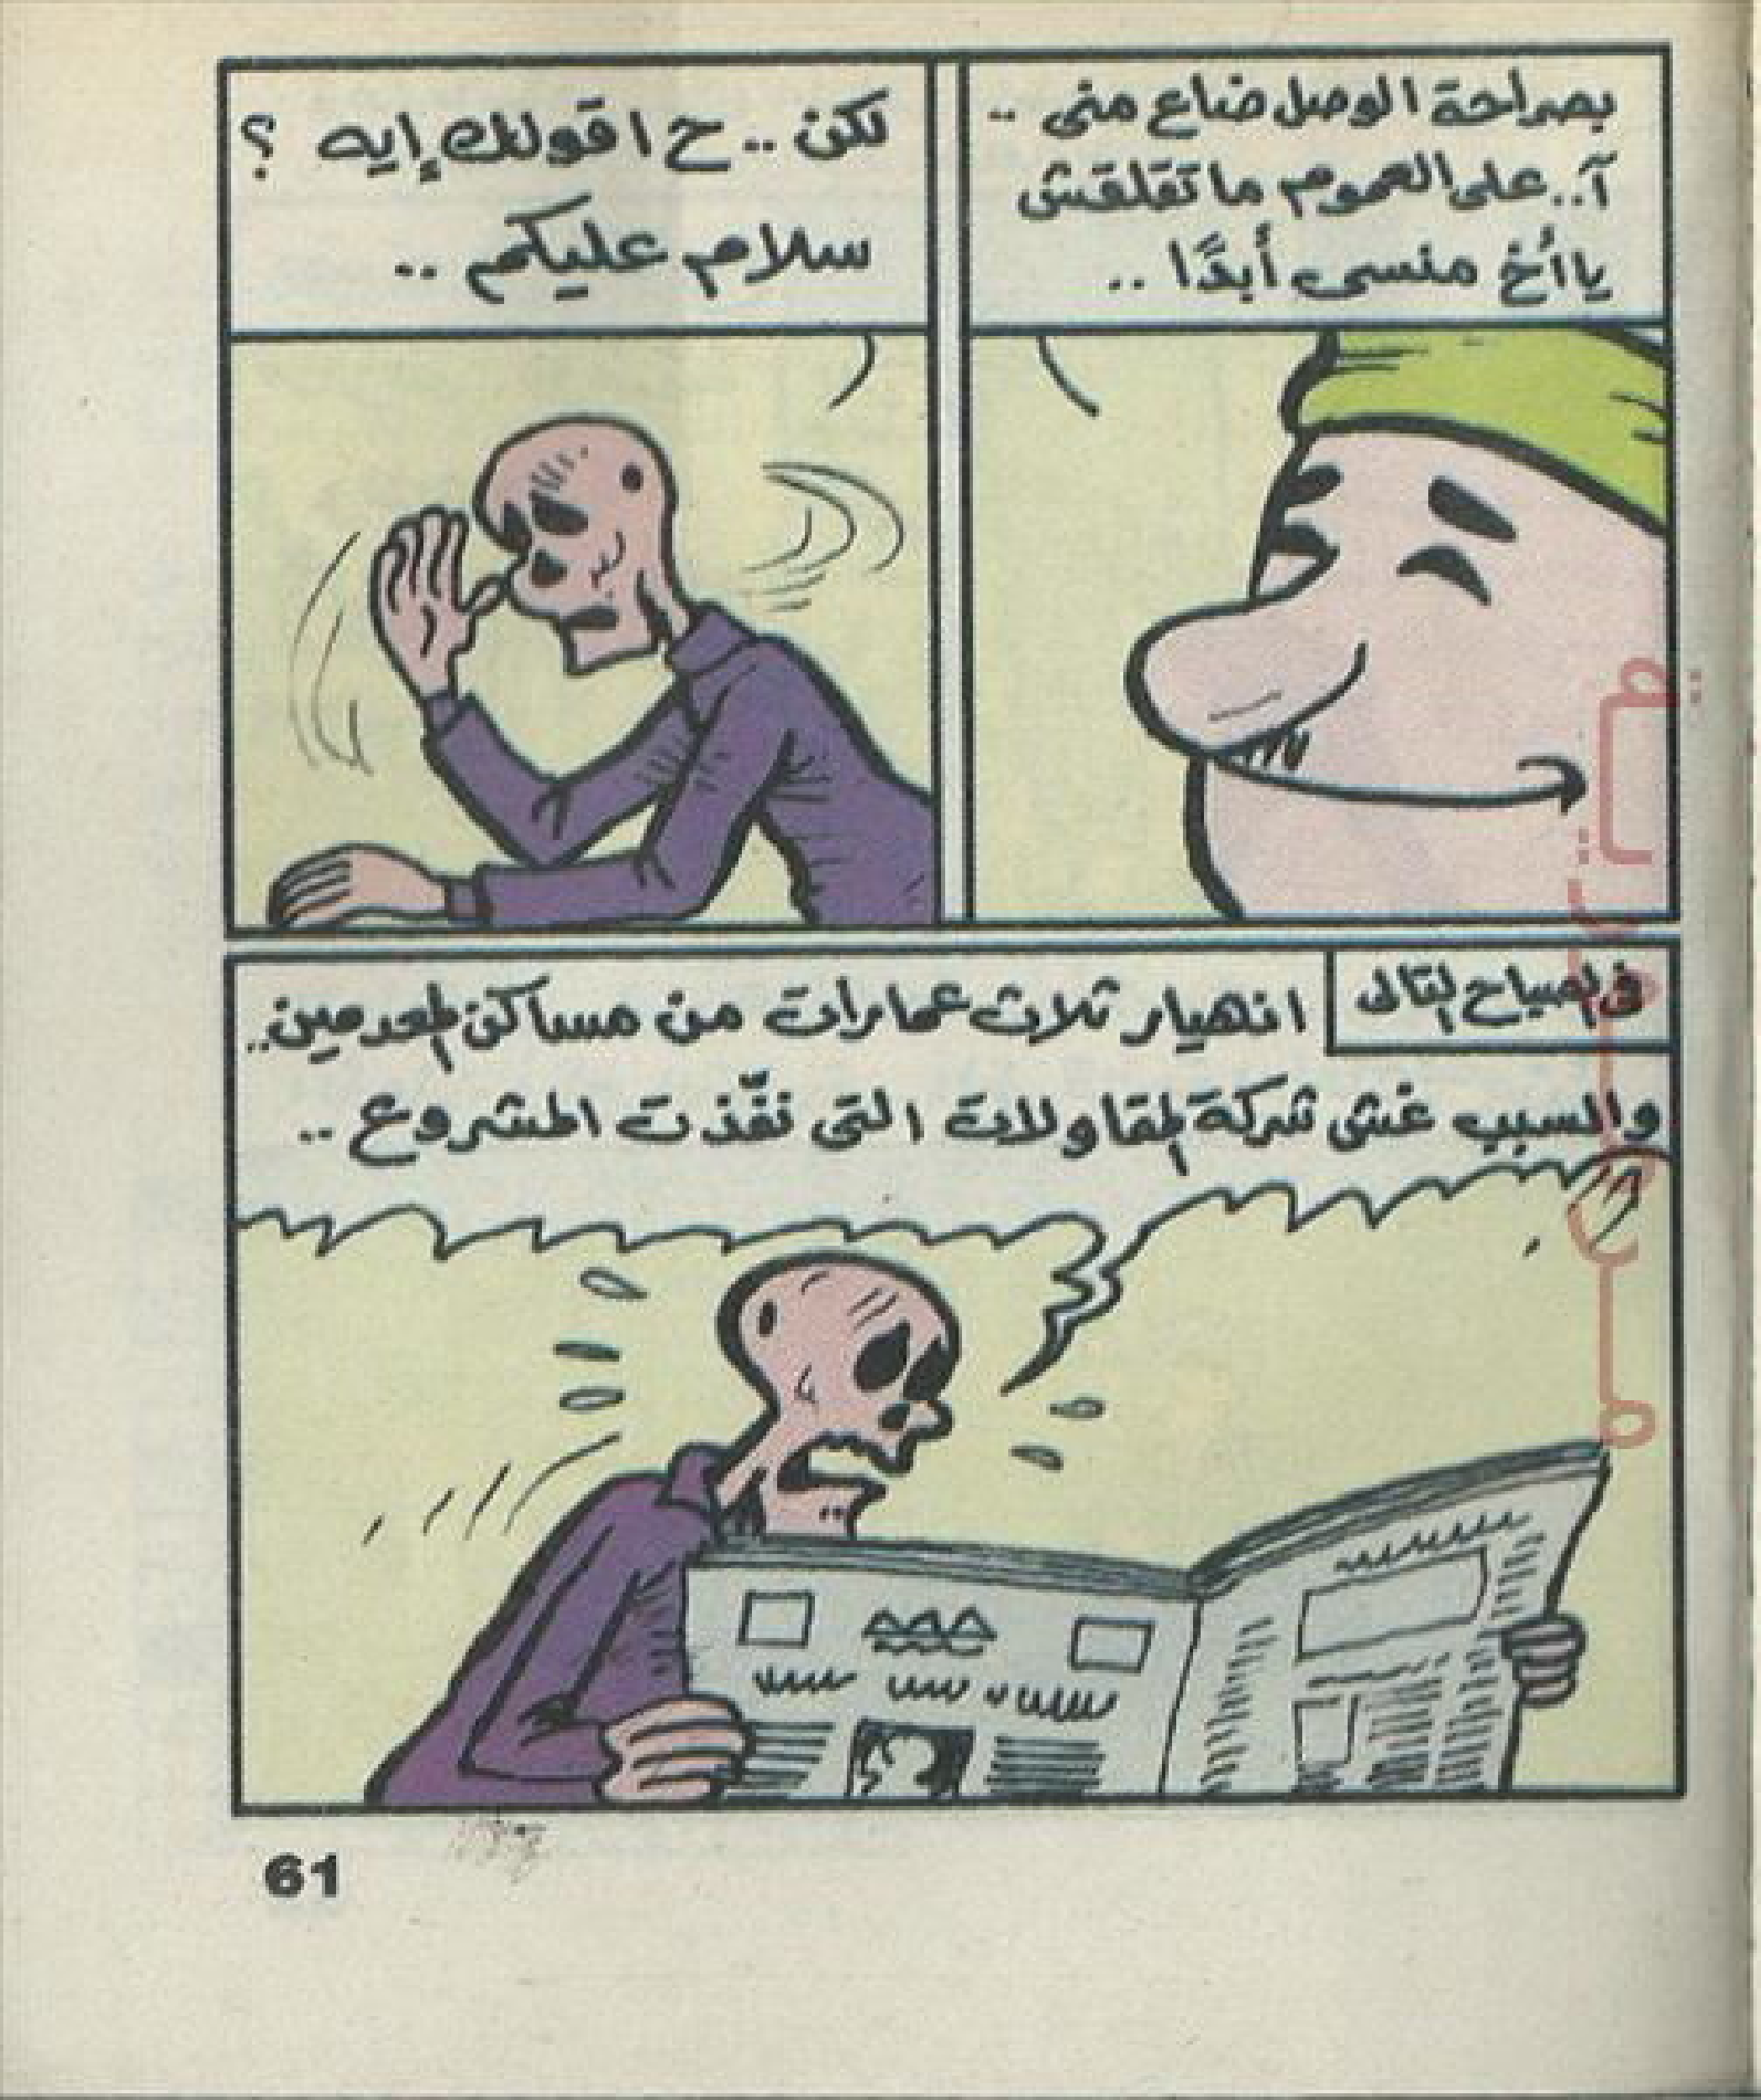 بصراحة الوصل ضاع منى ..
آ.. على العموم ما تقلقش
يا أخ منسى أبدًا ..
لكن .. ح اقولك إيه ؟
سلام عليكم ..
فى الصباح التالى
انهيار ثلاث عمارات من مساكن المعدمين..
والسبب غش شركة المقاولات التى نفّذت المشروع ..
61